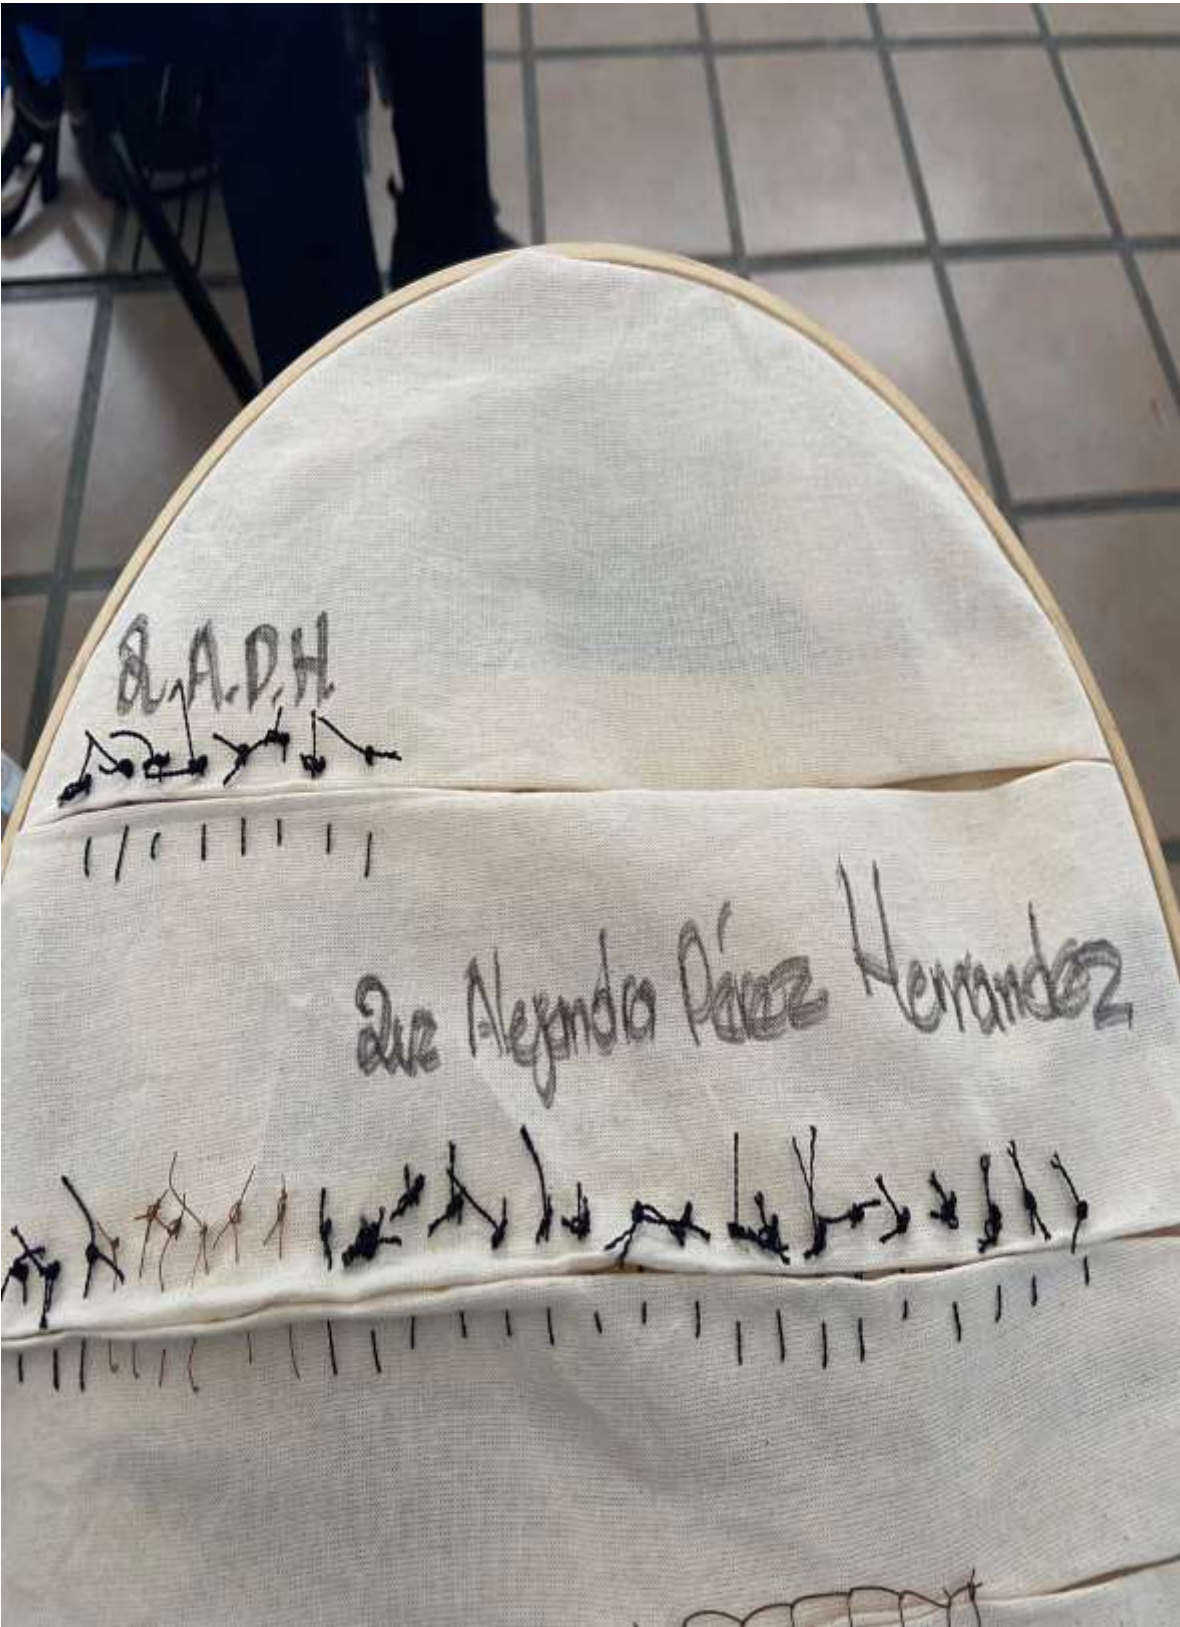 A.P.H.
Alejandro Pérez Hernandez